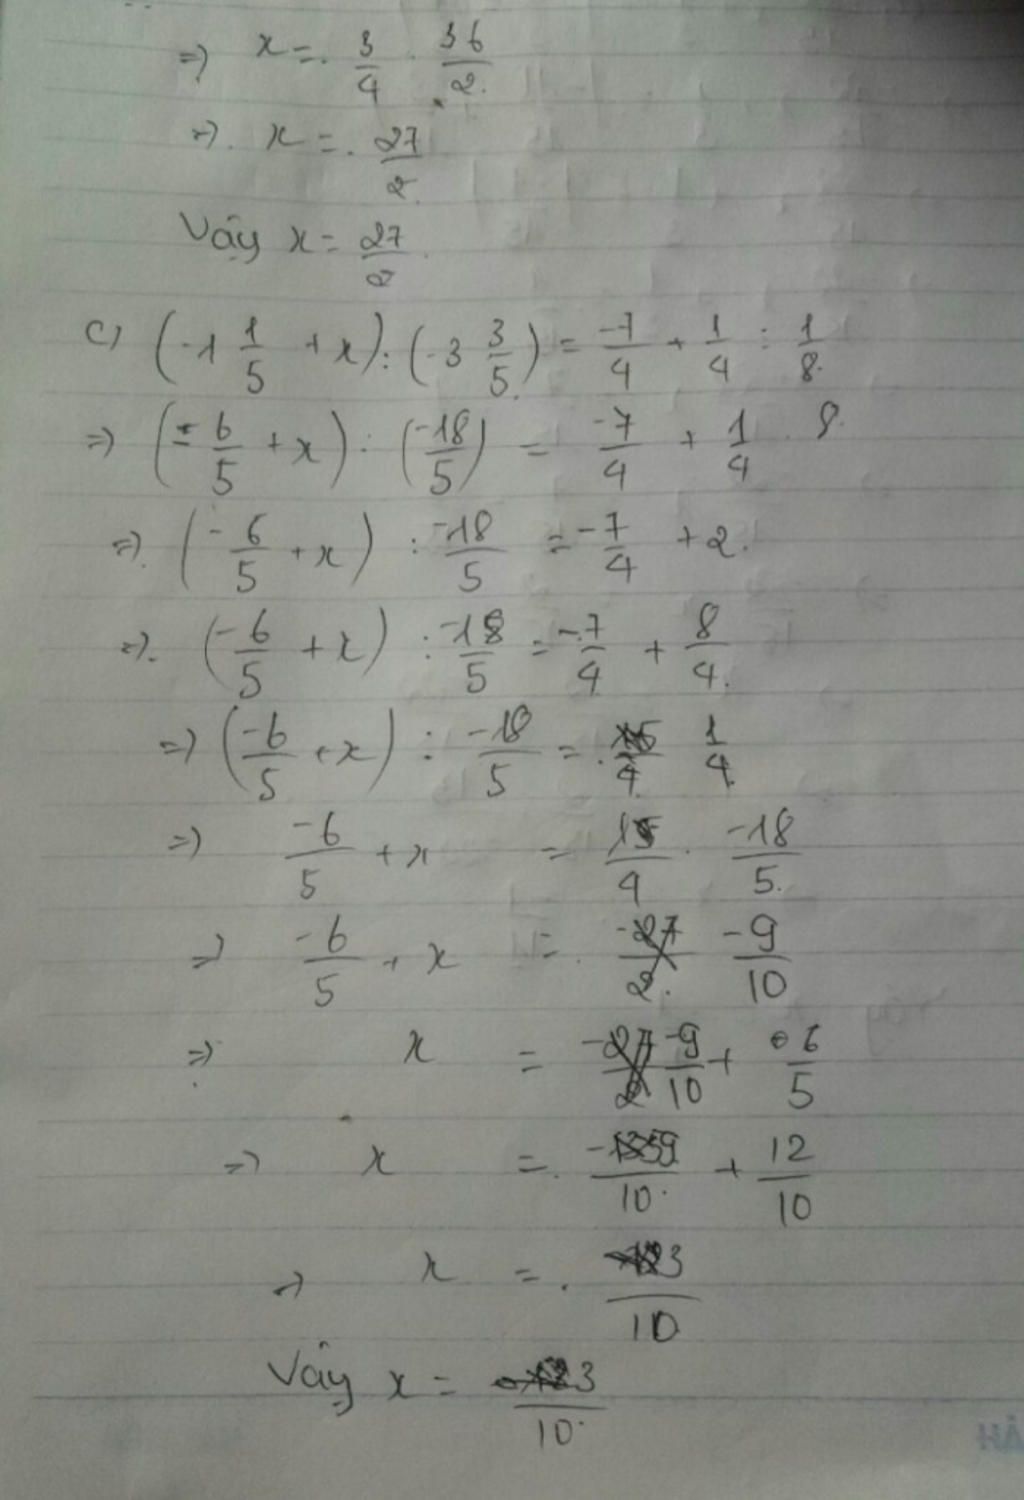 => x = 3/4 . 36/2
=> x = 27/2
Vậy x = 27/2
c) (-1 1/5 + x) : (-3 3/5) = -7/4 + 1/4 : 1/8
=> (-6/5 + x) : (-18/5) = -7/4 + 1/4 . 8
=> (-6/5 + x) : -18/5 = -7/4 + 2
=> (-6/5 + x) : -18/5 = -7/4 + 8/4
=> (-6/5 + x) : -18/5 = 1/4
=> -6/5 + x = 1/4 . -18/5
=> -6/5 + x = -9/10
=> x = -9/10 + 6/5
=> x = -9/10 + 12/10
=> x = 3/10
Vậy x = 3/10